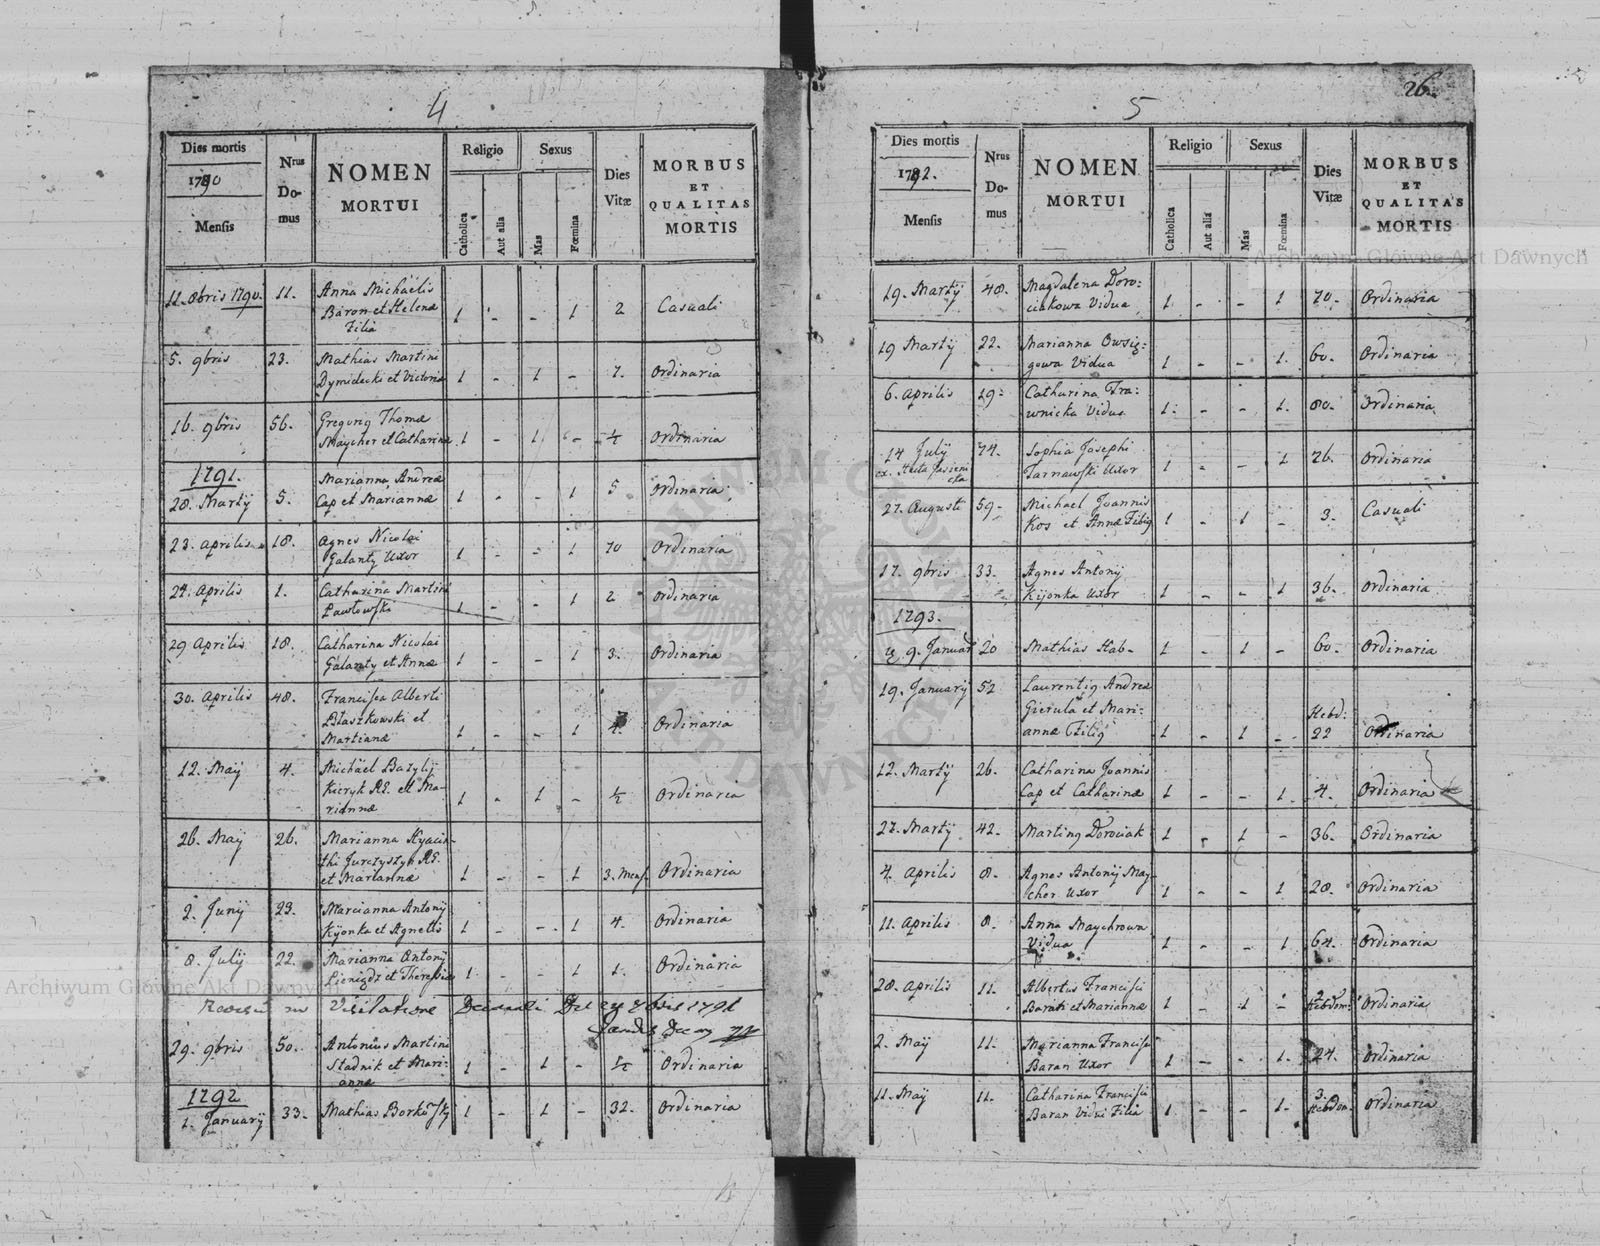 4
Dies mortis
1790
Mensis
Nrus Do- mus
NOMEN MORTUI
Religio
Catholica
Aut alia
Sexus
Mas
Fœmina
Dies Vitæ
MORBUS ET QUALITAS MORTIS
11. 8bris 1790. 11. Anna Michaelis
Baron et Helenæ 1 - - 1 2 Casuali
Filia
5. 9bris 23. Mathias Martini
Dymidecki et Victoria 1 - 1 - 7. Ordinaria
16. 9bris 56. Gregorig Thomæ
Maycher et Catharinæ 1 - 1 - ½ Ordinaria
1791.
28. Martij 5. Marianna Andreæ
Cap et Mariannæ 1 - - 1 5. Ordinaria
23. Aprilis 18. Agnes Nicolai
Galanty Uxor 1 - - 1 70 Ordinaria
24. Aprilis 1. Catharina Martini
Pawłowski 1 - - 1 2 Ordinaria
29 Aprilis 18. Catharina Nicolai
Galanty et Annæ 1 - - 1 3. Ordinaria
30. Aprilis 48. Francisca Alberti
Błaszkowski et
Martianæ 1 - - 1 Ordinaria
12. Maij 4. Michael Bazylij
Kieryk R.G. et Ma-
riannæ 1 - 1 - ½ Ordinaria
26. Maij 26. Marianna Hyacin-
thi Jurczyszyn R.G.
et Mariannæ 1 - - 1 3. Mens. Ordinaria
2. Junij 23. Marcianna Antonij
Kijonka et Agnetis 1 - - 1 4. Ordinaria
8. Julij 22. Marianna Antonij
et Theresiæ 1 - - 1 1. Ordinaria
in Visitatione Decanali Die 7bris 1791
29. 9bris 50. Antonius Martini
Stadnik et Mari-
annæ 1 - 1 - ½ Ordinaria
1792
1. Januarij 33. Mathias Borkowski 1 - 1 - 32. Ordinaria
5
26.
Dies mortis
1792.
Mensis
Nrus Do- mus
NOMEN MORTUI
Religio
Catholica
Aut alia
Sexus
Mas
Fœmina
Dies Vitæ
MORBUS ET QUALITAS MORTIS
19. Martij 48. Magdalena Doro-
ciakowa Vidua 1 - - 1 70. Ordinaria
19 Martij 22. Marianna Owsig=
gowa Vidua 1 - - 1. 60. Ordinaria
6. Aprilis 19. Catharina Tra-
wnicka Vidua 1. - - 1. 80. Ordinaria
14 Julij 74. Sophia Josephi
Tarnawski Uxor 1 - - 1 26. Ordinaria
27. Augusti 59. Michael Joannis
Kos et Annæ Filig 1 - 1 - 3. Casuali
17. 9bris 33. Agnes Antonij
Kijonka Uxor 1 - - 1 36. Ordinaria
1793.
9. Januar 20 Mathias Hab- 1 - 1 - 60. Ordinaria
19. Januarij 52 Laurentig Andreæ
Gierula et Mari-
annæ Filig 1 - 1 - Hebd: 22 Ordinaria
12. Martij 26. Catharina Joannis
Cap et Catharinæ 1 - - 1. 4. Ordinaria
27. Martij 42. Marting Dorociak 1 - 1 - 36. Ordinaria
4. Aprilis 8. Agnes Antonij May-
cher Uxor 1 - - 1 28. Ordinaria
11. Aprilis 8. Anna Maychrowa
Vidua 1 - - 1 64. Ordinaria
28. Aprilis 11. Albertus Francisci
Baran et Mariannæ 1 - 1 - Hebdom: Ordinaria
2. Maij 11. Marianna Francisci
Baran Uxor 1 - - 1. 24. Ordinaria
11. Maij 11. Catharina Francisci
Baran Vidui Filia 1 - - 1. 3. Hebdom. Ordinaria
Archiwum Główne Akt Dawnych
Archiwum Główne Akt Dawnych
ARCHIWUM GŁÓWNE AKT DAWNYCH